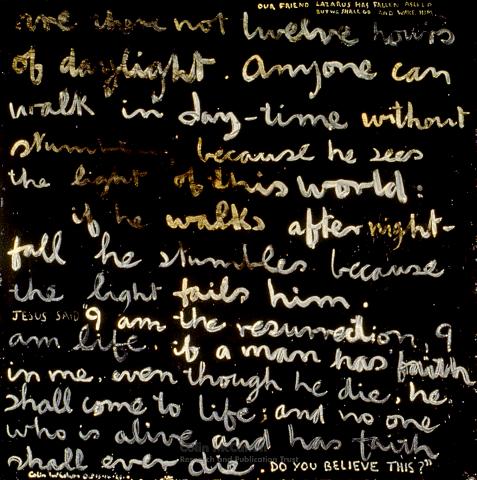 OUR FRIEND LAZARUS HAS FALLEN ASLEEP
BUT WE SHALL GO AND WAKE HIM
are there not twelve hours
of daylight. Anyone can
walk in day-time without
stumbling because he sees
the light of this world:
if he walks after night-
fall he stumbles because
the light fails him.
JESUS SAID "I am the resurrection, I
am life. if a man has faith
in me, even though he die, he
shall come to life; and no one
who is alive and has faith
shall ever die. DO YOU BELIEVE THIS?"
Colin
Research and Publication Trust